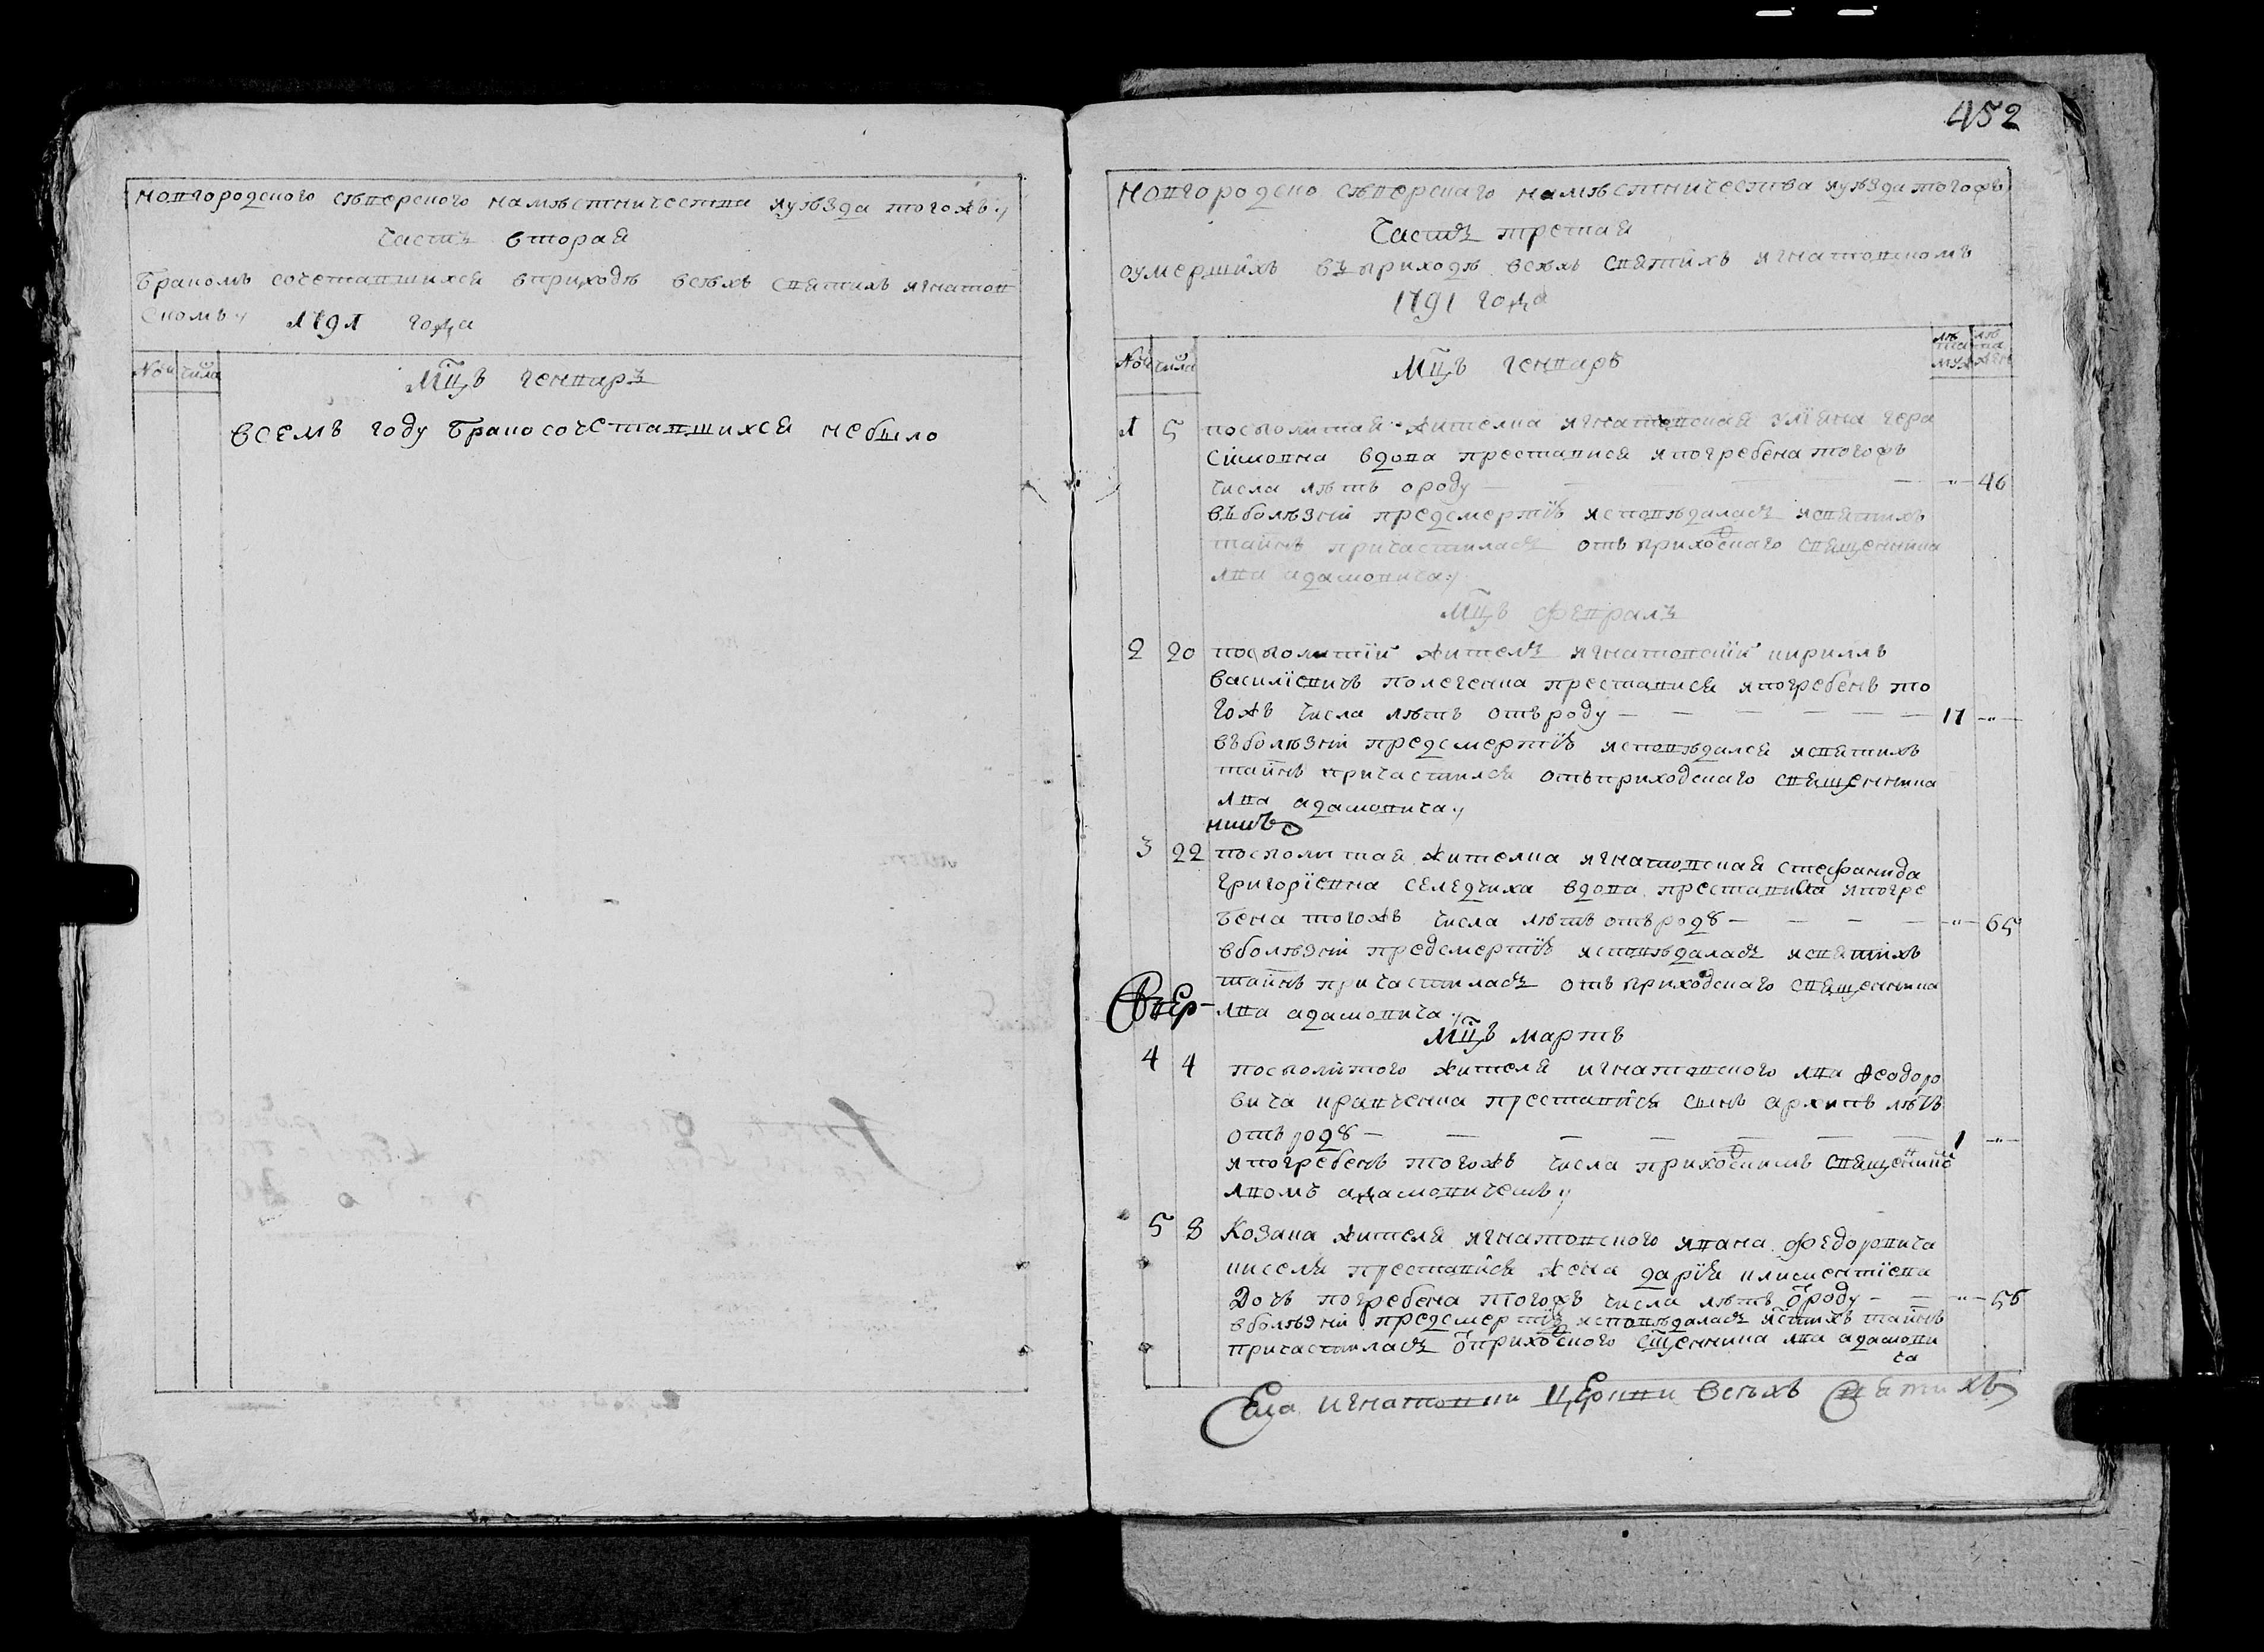 новгородского сѣверского намѣстничества иуѣзда тогожъ
часть вторая
бракомъ сочетавшихся вприходѣ всѣхъ святихъ игнатов
скомъ 1791 года
№ числа
Мцъ генварь
всемъ году бракосочетавшихся небыло
452
новгородско сѣверскаго намѣстничества иуѣзда тогожъ
часть третая
оумершихъ въ приходѣ всѣхъ святихъ игнатовскомъ
1791 года
№ числа
Мцъ генварь
лѣ та муж
лѣ та жен
1 5 посполитая жителка игнатовская
Симовна вдова преставися ипогребена тогожъ
числа лѣтъ ороду — 46
въ болѣзнй предсмертнѣ исповѣдалась исвятихъ
тайнъ причастилась отъ приходскаго священника
льва адамовича
Мцъ февраль
2 20 посполитїй житель игнатовскїй кирилъ
василїевичъ полегенка преставися ипогребенъ то
гожъ числа лѣтъ отъ роду — 17
въболѣзнй предсмертїѣ исповѣдался исвятихъ
тайнъ причастился отъприходскаго священника
лва адамовича
3 22 посполитая жителка игнатовская стефанида
григорїевна селедчиха вдова преставися ипогре
бена тогожъ числа лѣтъ отъ родꙋ — 65
вболѣзнй предсмертїѣ исповѣдалась исвятіхъ
тайнъ причастилась отъ приходскаго священника
лва адамовича
Мцъ мартъ
4 4 посполитого жителя игнатовского лва ѳеодоро
вича кравченка преставися сынъ архипъ лѣтъ
отъ родꙋ — 1
ипогребенъ тогожъ числа приходскимъ священико
лвомъ адамовичемъ
5 8 Козака жителя игнатовского ивана федоровича
киселя преставися жена дарїя климентїева
Дочъ погребена тогожъ числа лѣтъ ѿроду —
вболѣзнй предсмертїѣ исповѣдалась истихъ тайнъ
причастилась ѿприходского сщенника лва адамови
ча
Села игнатовки Церкви всѣхъ Святихъ